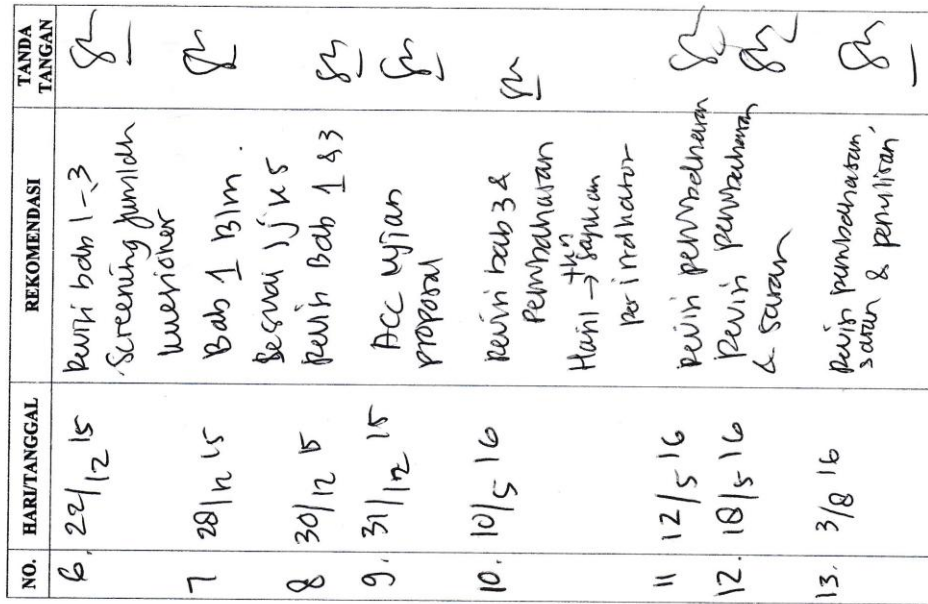 NO. HARI/TANGGAL REKOMENDASI TANDA TANGAN
6. 22/12 15 Revisi bab 1-3
Screening jumlah
kuesioner
7 28/12 15 Bab 1 Blm.
Sesuai
8 30/12 15 Revisi Bab 1 &3
9. 31/12 15 Acc ujian
proposal
10. 10/5 16 Revisi bab 3 &
Pembahasan
Hasil → sajikan
per indikator
11 12/5 16 Revisi pembahasan
12. 18/5 16 Revisi pembahasan
& saran
13. 3/8 16 Revisi pembahasan,
saran & penulisan,